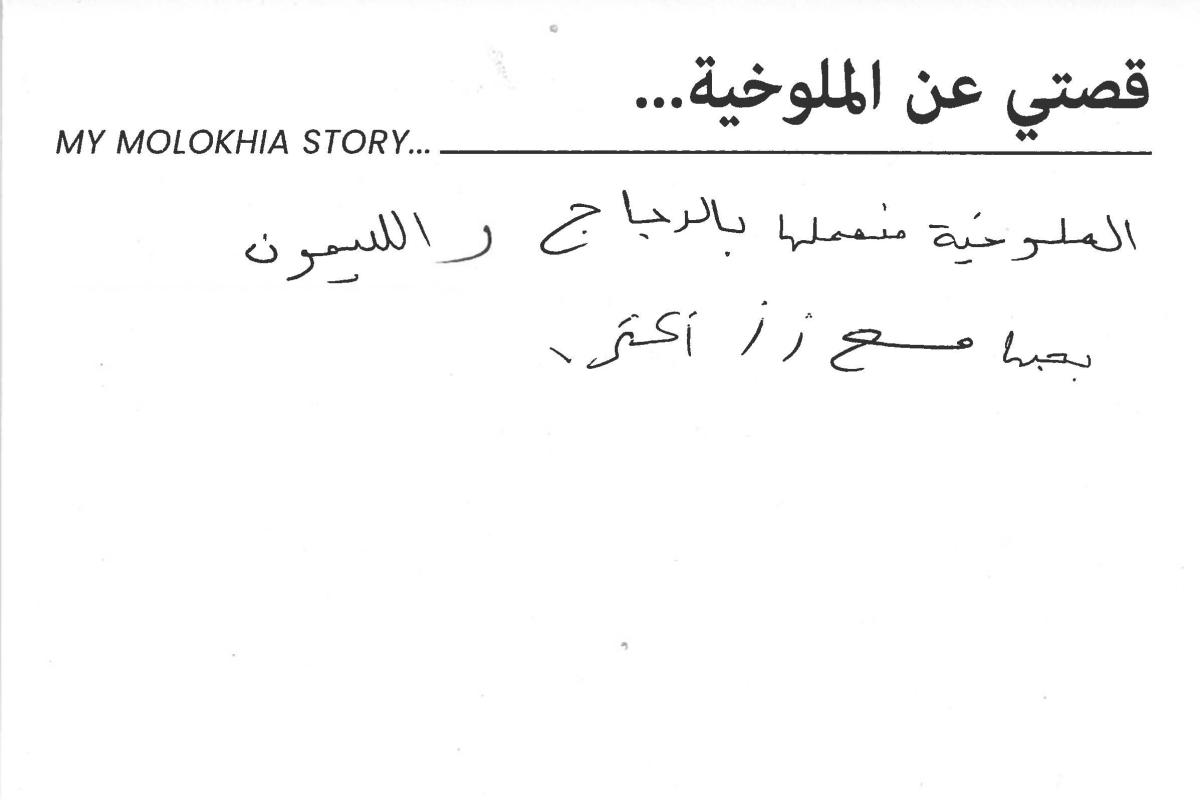 قصتي عن الملوخية...
MY MOLOKHIA STORY...
الملوخية منعملها بالدجاج و الليمون
بحبها مع رز أكتر.